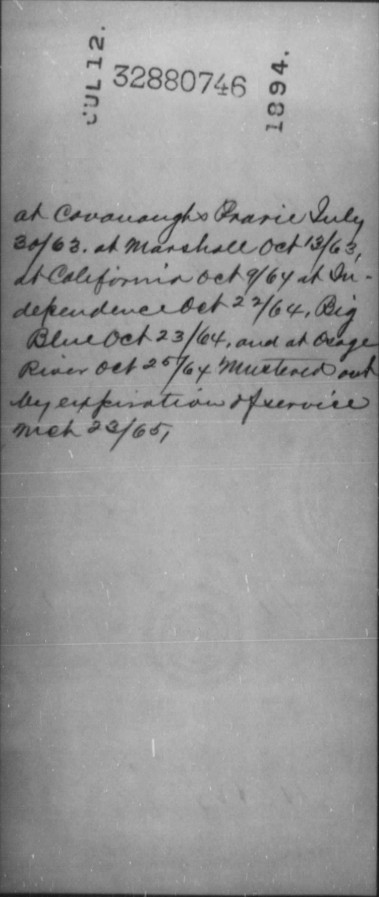 JUL 12.
32880746
1894.
at Cavanaughs Prarie July
30/63. at Marshall Oct 13/63,
at California Oct 9/64 at In-
dependence Oct 22/64, Big
Blue Oct 23/64, and at Osage
River Oct 25/64 Mustered out
by expiration of service
Mch 23/65,